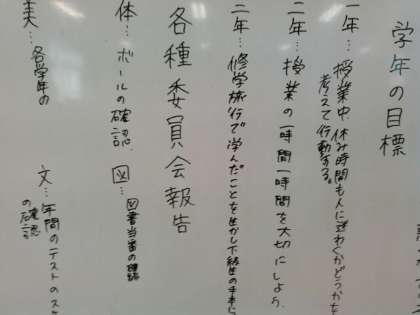 学年の目標
一年…授業中、休み時間も人に迷わくかどうかを
考えて行動する。
二年…授業の一時間一時間を大切にしよう。
三年…修学旅行で学んだことを生かし下級生の手本に
各種委員会報告
体…ボールの確認
図…図書当番の確認
美…各学年の
文…年間のテストの
の確認